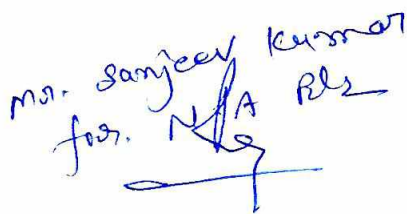 Mr. Sanjeev Kumar
for. N A Plz